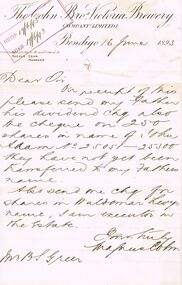 The Cohn Bros Victoria Brewery
COMPANY LIMITED
Bendigo 16 June 1893
Dear Sir
On receipt of this
please send my Father
his dividend chq also
the cheque on 250
shares in name of
Adam No 25051 - 25300
they have not yet been
transferred to my Fathers
name.
Also send me chq for
shares in Waldemar Levy
name, I am executor in
the Estate.
Yours truly
Magnus Cohn
Mr B S Greer